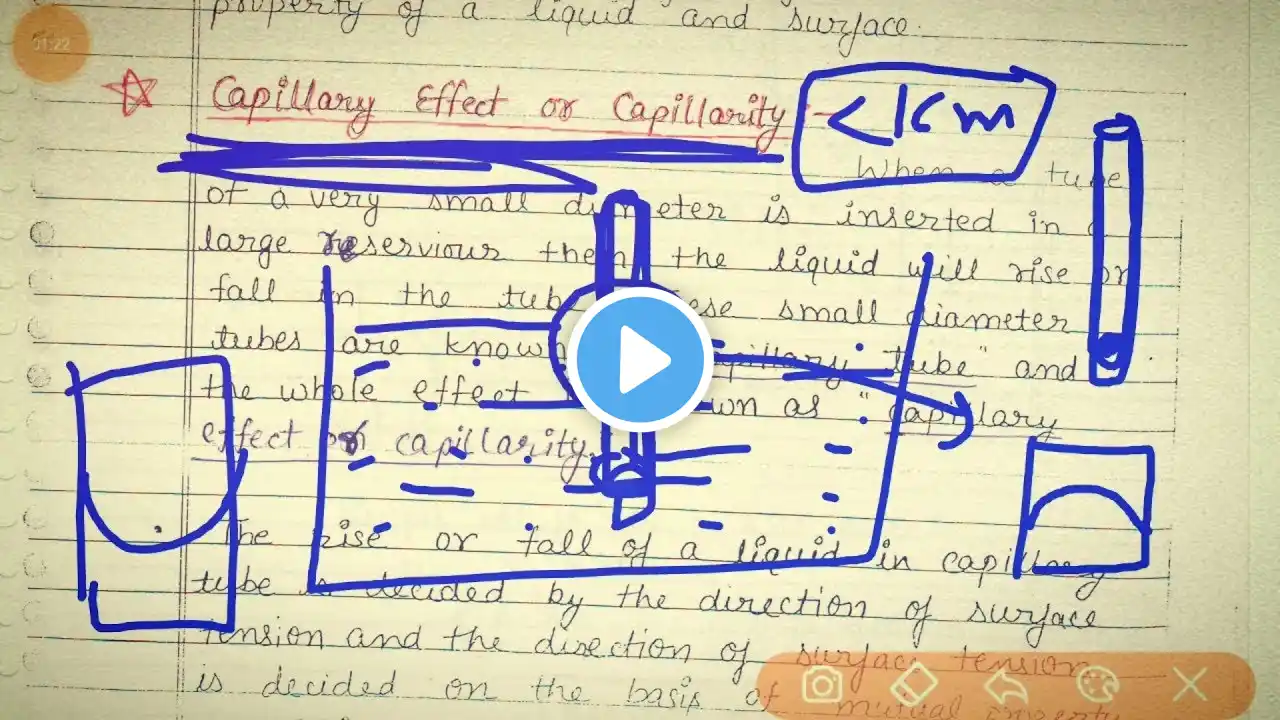 property of a liquid and surface.
01:22
Capillary Effect or Capillarity :-
<1cm
When a tube
of a very small diameter is inserted in a
large reserviour then the liquid will rise or
fall in the tube. These small diameter
tubes are known "capillary tube" and
the whole effect known as "capillary
effect or capillarity.
The rise or fall of a liquid in capillary
tube is decided by the direction of surface
tension and the direction of surface tension
is decided on the basis of mutual property